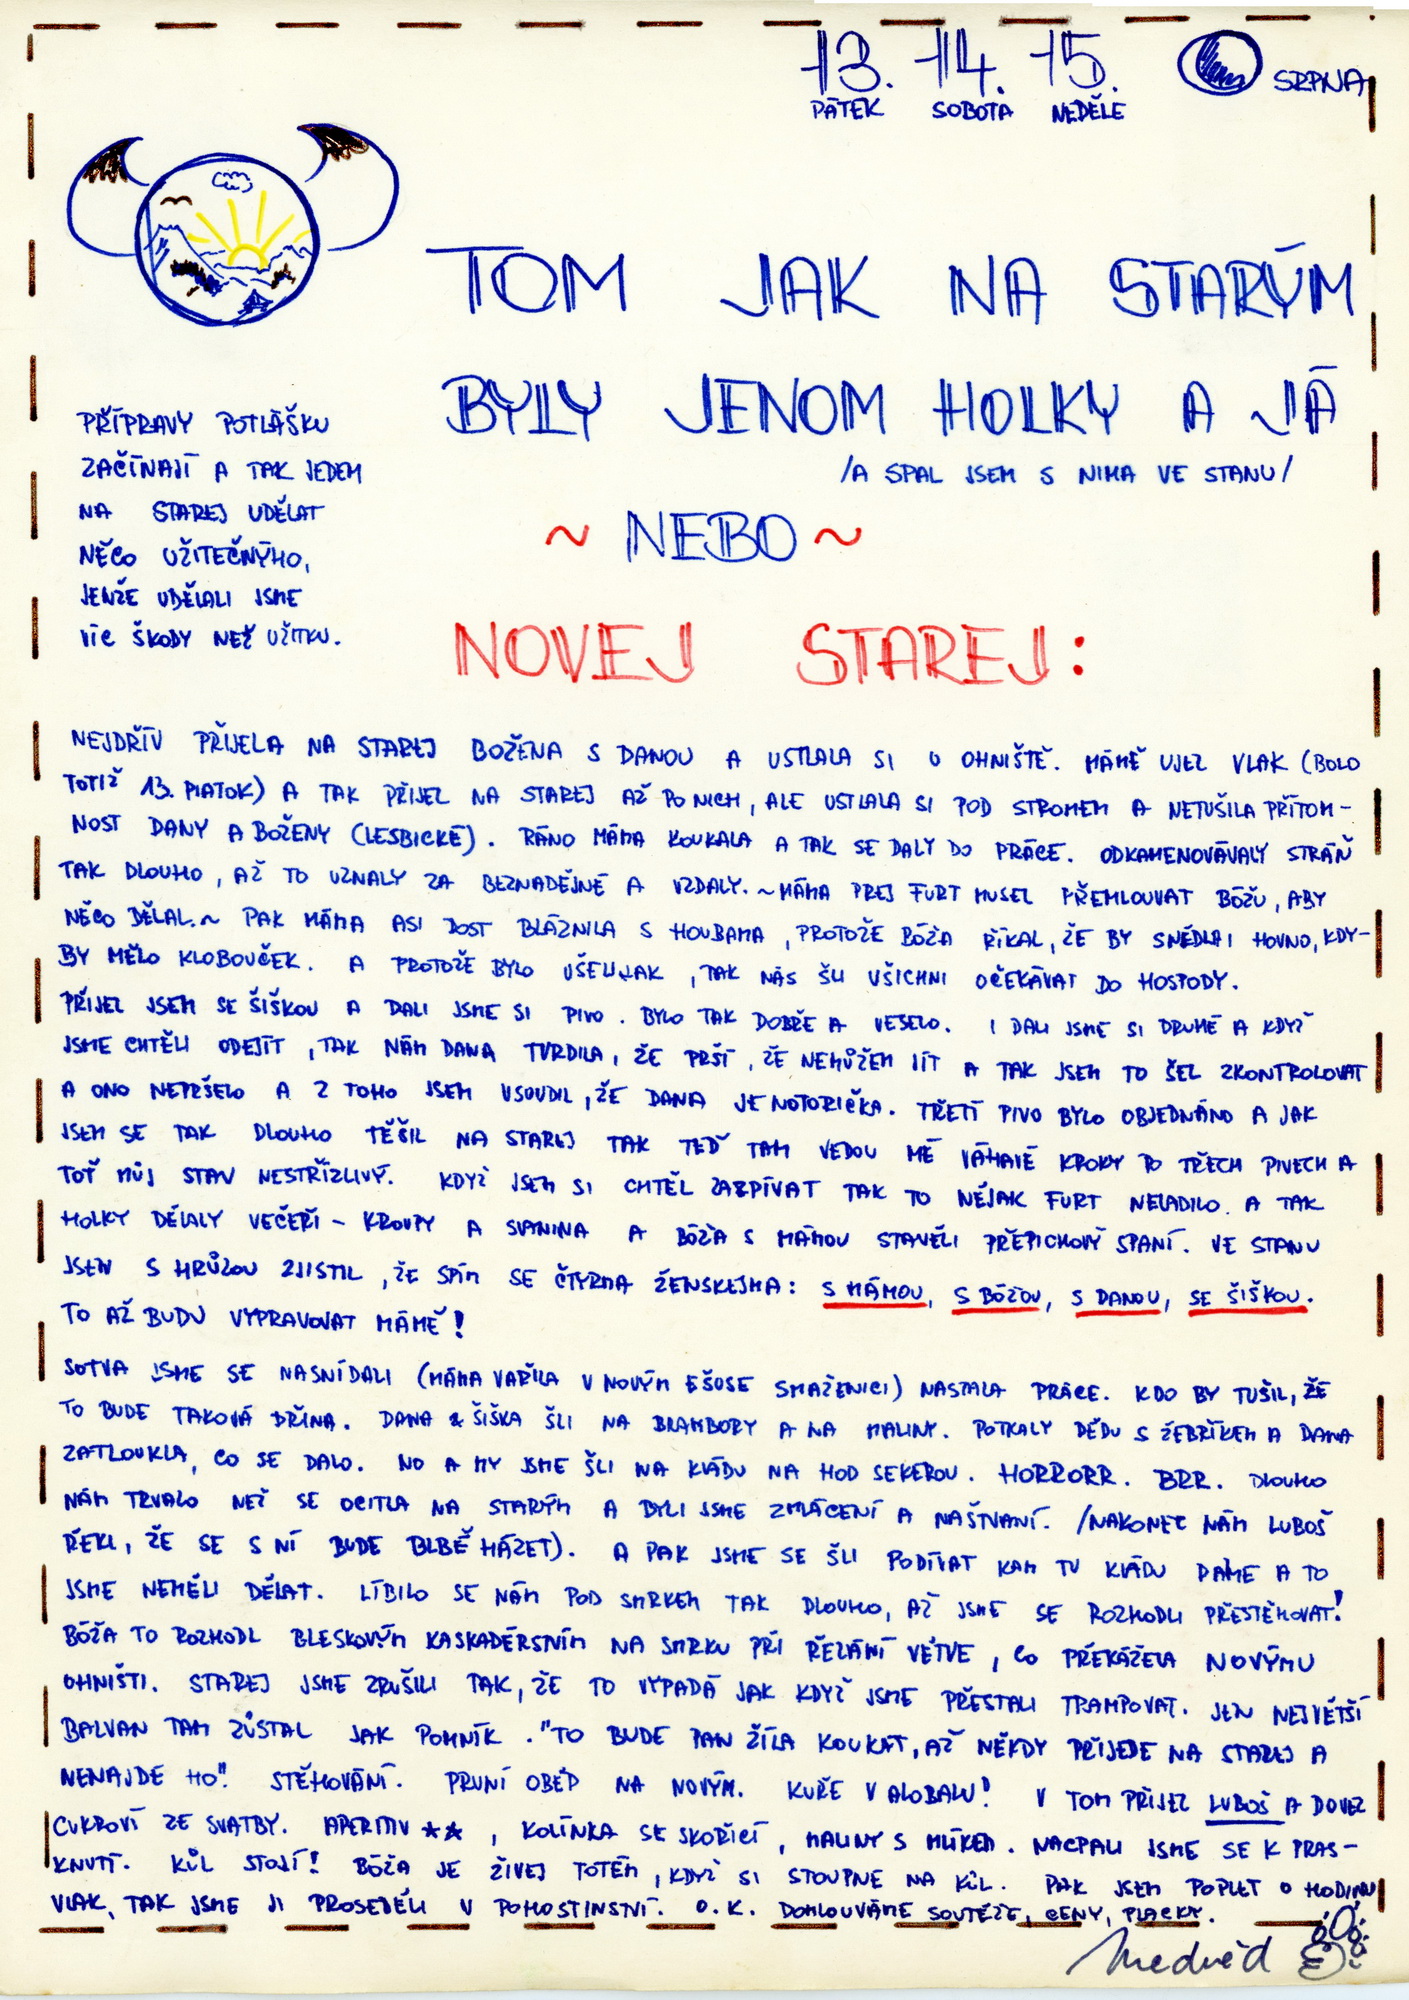 13. 14. 15. SRPNA
PÁTEK SOBOTA NEDĚLE
TOM JAK NA STARÝM
BYLY JENOM HOLKY A JÁ
/A SPAL JSEM S NIMA VE STANU/
~ NEBO ~
NOVEJ STAREJ:
PŘÍPRAVY POTLÁŠKU
ZAČÍNAJÍ A TAK JEDEM
NA STAREJ UDĚLAT
NĚCO UŽITEČNÝHO,
JENŽE UDĚLALI JSME
VÍC ŠKODY NEŽ UŽITKU.
NEJDŘÍV PŘIJELA NA STAREJ BOŽENA S DANOU A USTLALA SI U OHNIŠTĚ. MÁMĚ UJEL VLAK (BOLO
TOTIŽ 13. PIATOK) A TAK PŘIJEL NA STAREJ AŽ PO NICH, ALE USTLALA SI POD STROMEM A NETUŠILA PŘÍTOM-
NOST DANY A BOŽENY (LESBICKÉ). RÁNO MÁMA KOUKALA A TAK SE DALY DO PRÁCE. ODKAMENOVÁVALY STRÁŇ
TAK DLOUHO, AŽ TO UZNALY ZA BEZNADĚJNÉ A VZDALY. ~MÁMA PREJ FURT MUSEL PŘEMLOUVAT BÓŽU, ABY
NĚCO DĚLAL.~ PAK MÁMA ASI DOST BLÁZNILA S HOUBAMA, PROTOŽE BÓŽA ŘÍKAL, ŽE BY SNĚDLA I HOVNO, KDY-
BY MĚLO KLOBOUČEK. A PROTOŽE BYLO VŠELIJAK, TAK NÁS ŠLI VŠICHNI OČEKÁVAT DO HOSPODY.
PŘIJEL JSEM SE ŠIŠKOU A DALI JSME SI PIVO. BYLO TAK DOBŘE A VESELO. I DALI JSME SI DRUHÉ A KDYŽ
JSME CHTĚLI ODEJÍT, TAK NÁM DANA TVRDILA, ŽE PRŠÍ, ŽE NEMŮŽEM JÍT A TAK JSEM TO ŠEL ZKONTROLOVAT
A ONO NEPRŠELO A Z TOHO JSEM USOUDIL, ŽE DANA JE NOTORIČKA. TŘETÍ PIVO BYLO OBJEDNÁNO A JAK
JSEM SE TAK DLOUHO TĚŠIL NA STAREJ TAK TEĎ TAM VEDOU MÉ VÁHAVÉ KROKY PO TŘECH PIVECH A
TOŤ MŮJ STAV NESTŘÍZLIVÝ. KDYŽ JSEM SI CHTĚL ZAZPÍVAT TAK TO NĚJAK FURT NELADILO. A TAK
HOLKY DĚLALY VEČEŘI - KROUPY A SVANINA A BÓŽA S MÁMOU STAVĚLI PŘEPICHOVÝ SPANÍ. VE STANU
JSEM S HRŮZOU ZJISTIL, ŽE SPÍM SE ČTYRMA ŽENSKEJMA: S MÁMOU, S BÓŽOU, S DANOU, SE ŠIŠKOU.
TO AŽ BUDU VYPRAVOVAT MÁMĚ!
SOTVA JSME SE NASNÍDALI (MÁMA VAŘILA V NOVÝM EŠUSE SMAŽENICI) NASTALA PRÁCE. KDO BY TUŠIL, ŽE
TO BUDE TAKOVÁ DŘINA. DANA & ŠIŠKA ŠLI NA BRAMBORY A NA MALINY. POTKALY DĚDU S ŽEBŘÍKEM A DANA
ZATLOUKLA, CO SE DALO. NO A MY JSME ŠLI NA KLÁDU NA HOD SEKEROU. HORRORR. BRR. DLOUHO
NÁM TRVALO NEŽ SE OCITLA NA STARÝM A BYLI JSME ZMLÁCENÍ A NAŠTVANÍ. /NAKONEC NÁM LUBOŠ
ŘEKL, ŽE SE S NÍ BUDE BLBĚ HÁZET). A PAK JSME SE ŠLI PODÍVAT KAM TU KLÁDU DÁME A TO
JSME NEMĚLI DĚLAT. LÍBILO SE NÁM POD SMRKEM TAK DLOUHO, AŽ JSME SE ROZHODLI PŘESTĚHOVAT!
BÓŽA TO ROZHODL BLESKOVÝM KASKADÉRSTVÍM NA SMRKU PŘI ŘEZÁNÍ VĚTVE, CO PŘEKÁŽELA NOVÝMU
OHNIŠTI. STAREJ JSME ZRUŠILI TAK, ŽE TO VYPADÁ JAK KDYŽ JSME PŘESTALI TRAMPOVAT. JEN NEJVĚTŠÍ
BALVAN TAM ZŮSTAL JAK POMNÍK. "TO BUDE PAN ŽÍLA KOUKAT, AŽ NĚKDY PŘIJEDE NA STAREJ A
NENAJDE HO". STĚHOVÁNÍ. PRVNÍ OBĚD NA NOVÝM. KUŘE V ALOBALU! V TOM PŘIJEL LUBOŠ A DOVEZ
CUKROVÍ ZE SVATBY. APERITIV ★★, KOLÍNKA SE SKOŘICÍ, MALINY S MLÍKEM. NACPALI JSME SE K PRAS-
KNUTÍ. KŮL STOJÍ! BÓŽA JE ŽIVEJ TOTÉM, KDYŽ SI STOUPNE NA KŮL. PAK JSEM POPLET O HODINU
VLAK, TAK JSME JI PROSEDĚLI V POHOSTINSTVÍ. O.K. DOMLOUVÁME SOUTĚŽE, CENY, PLACKY.
Medvěd